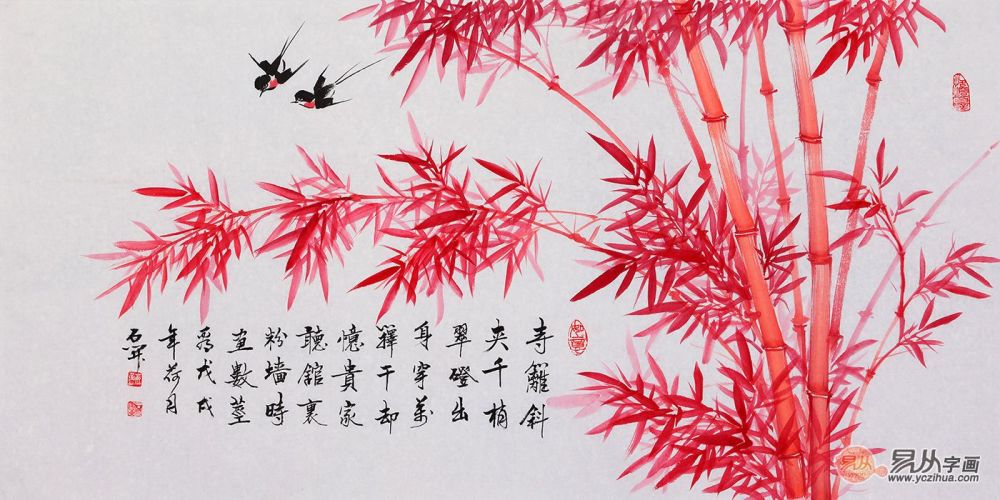 寺籬斜
夾千梢
翠磴出
身穿萬
籜干却
憶貴家
聽館裏
粉墻時
畫數莖
看戊戌
年荷月
石开
易从
易从字画
www.yczihua.com